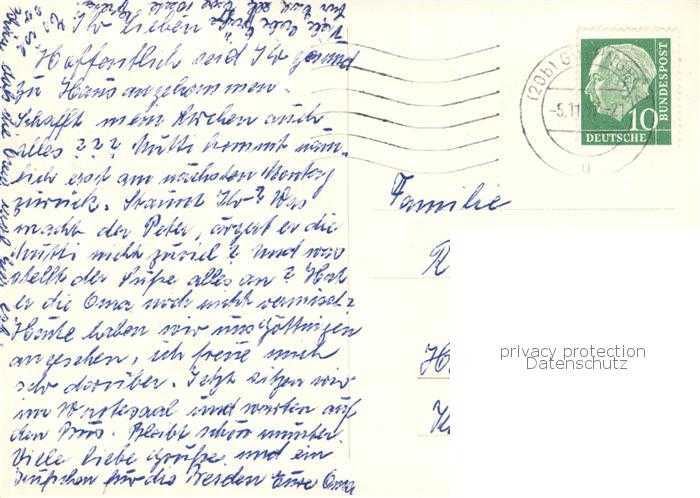 Ihr Lieben
Hoffentlich seid Ihr gesund
zu Haus angekommen.
Schafft mein Kirchen auch
alles??? Mutti kommt näm-
lich erst am nächsten Montag
zurück. Staunt Ihr? Was
macht der Peter, ärgert er die
Mutti nicht zuviel? Und was
stellt der alles an? Hat
er die Oma noch nicht vermisst?
Heute haben wir uns Göttingen
angesehen, ich freue mich
sehr darüber. Jetzt sitzen wir
im Wartesaal und warten auf
den Bus. Bleibt schön munter.
Viele liebe Grüße und ein
Küßchen für die Eure Oma
Familie
R
H
(20b) G
-5.11
u
10
DEUTSCHE
BUNDESPOST
privacy protection
Datenschutz